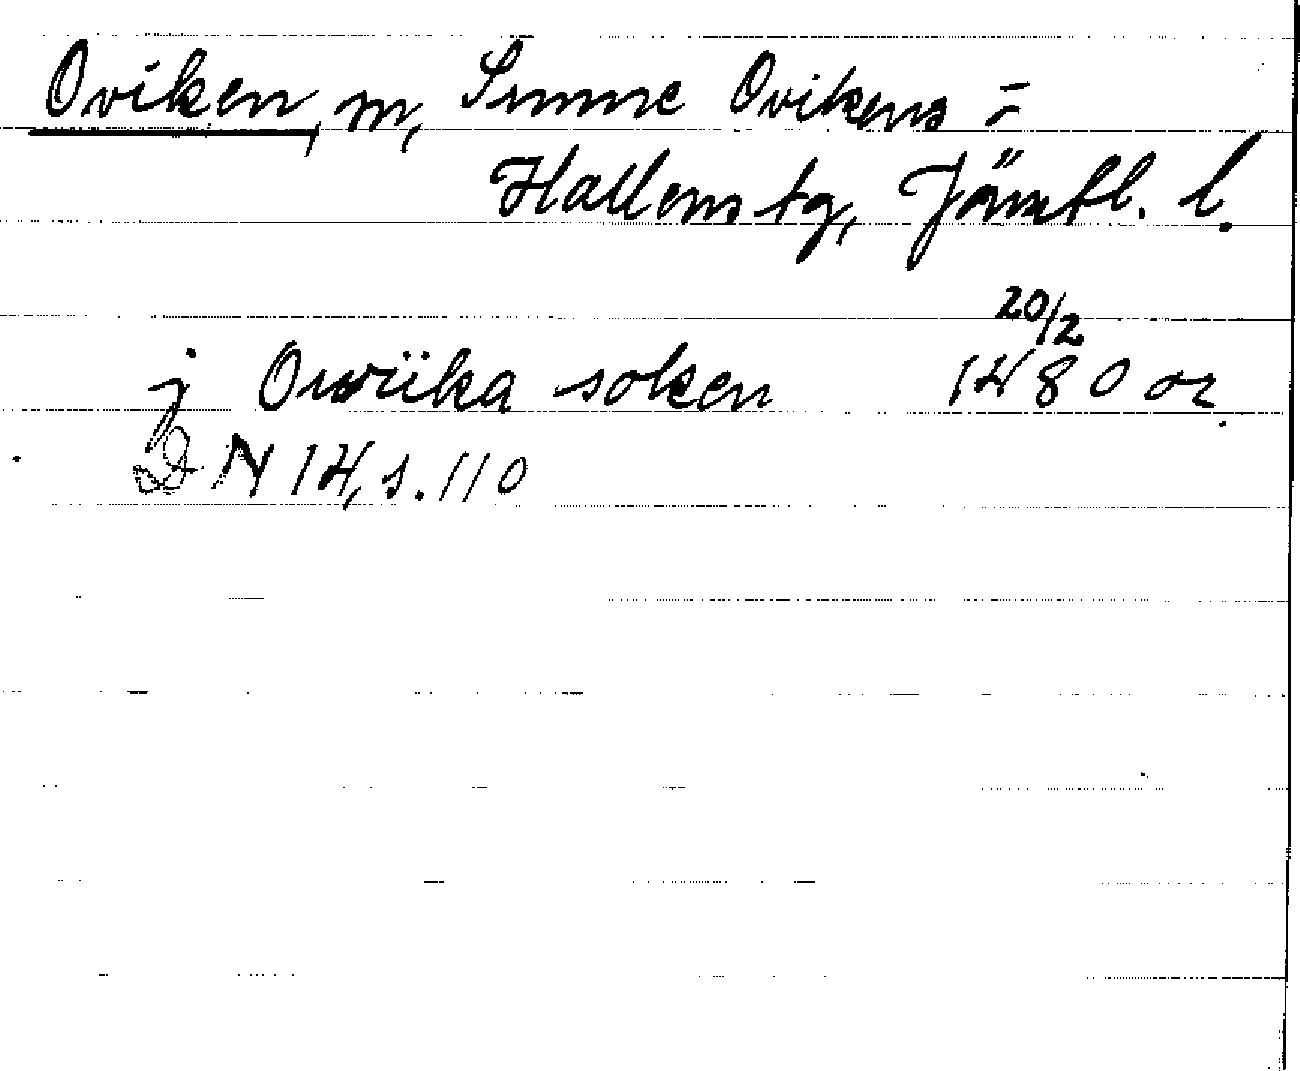 Oviken, m, Sunne Ovikens =
Hallens tg, Jämtl. l.
20/2
j Owiika soken 1480 or.
DN 14, s. 110